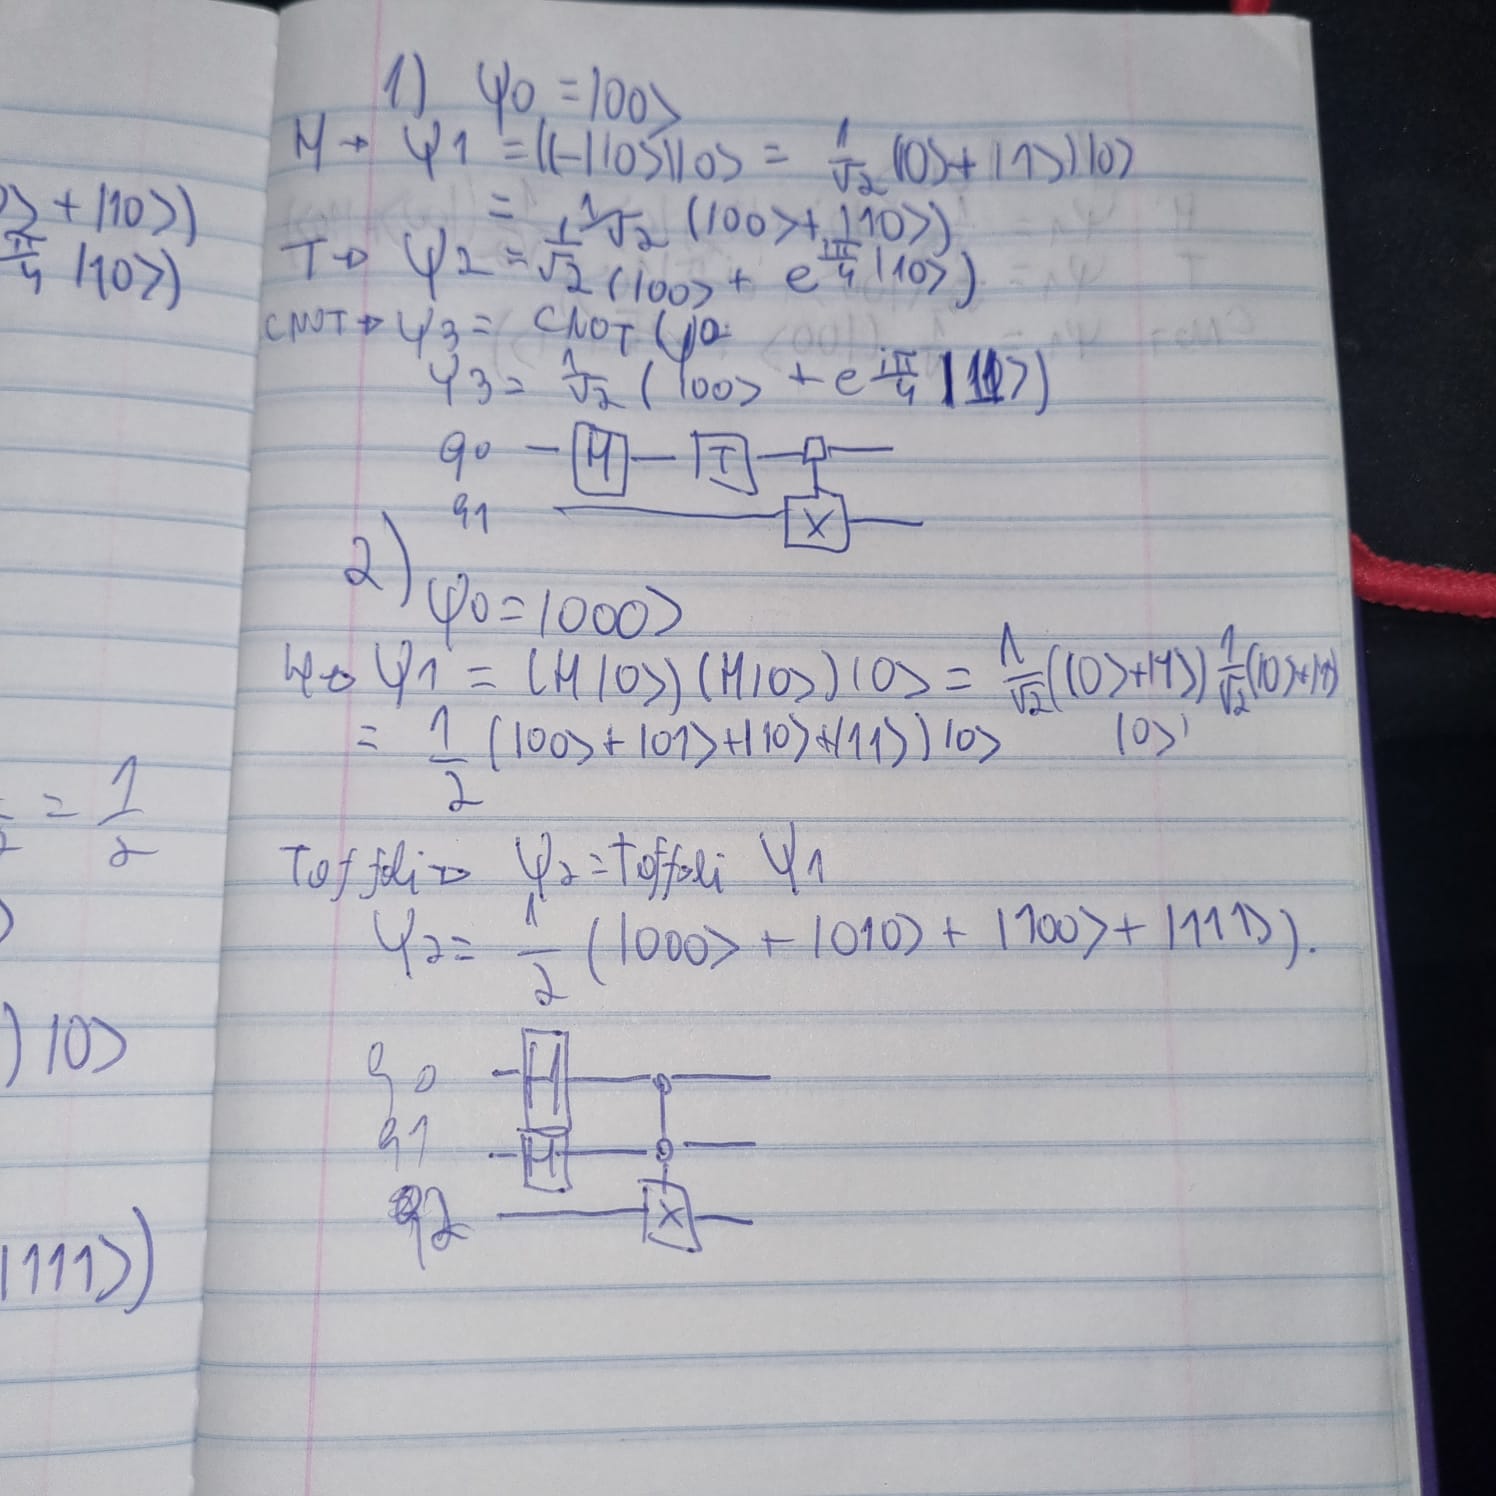 0> + |10>)
π/4 |10>)
= 1/2
) |0>
|111>)
1) ψ0 = |00>
H → ψ1 = (H|0>)|0> = 1/√2 (|0> + |1>) |0>
= 1/√2 (|00> + |10>)
T → ψ2 = 1/√2 (|00> + e^(iπ/4) |10>)
CNOT → ψ3 = CNOT ψ2
ψ3 = 1/√2 (|00> + e^(iπ/4) |11>)
q0 H T
q1 X
2)
ψ0 = |000>
H → ψ1 = (H|0>) (H|0>) |0> = 1/√2 (|0> + |1>) 1/√2 (|0> + |1>)
|0>
= 1/2 (|00> + |01> + |10> + |11>) |0>
Toffoli → ψ2 = Toffoli ψ1
ψ2 = 1/2 (|000> + |010> + |100> + |111>).
q0 H
q1 H
q2 X